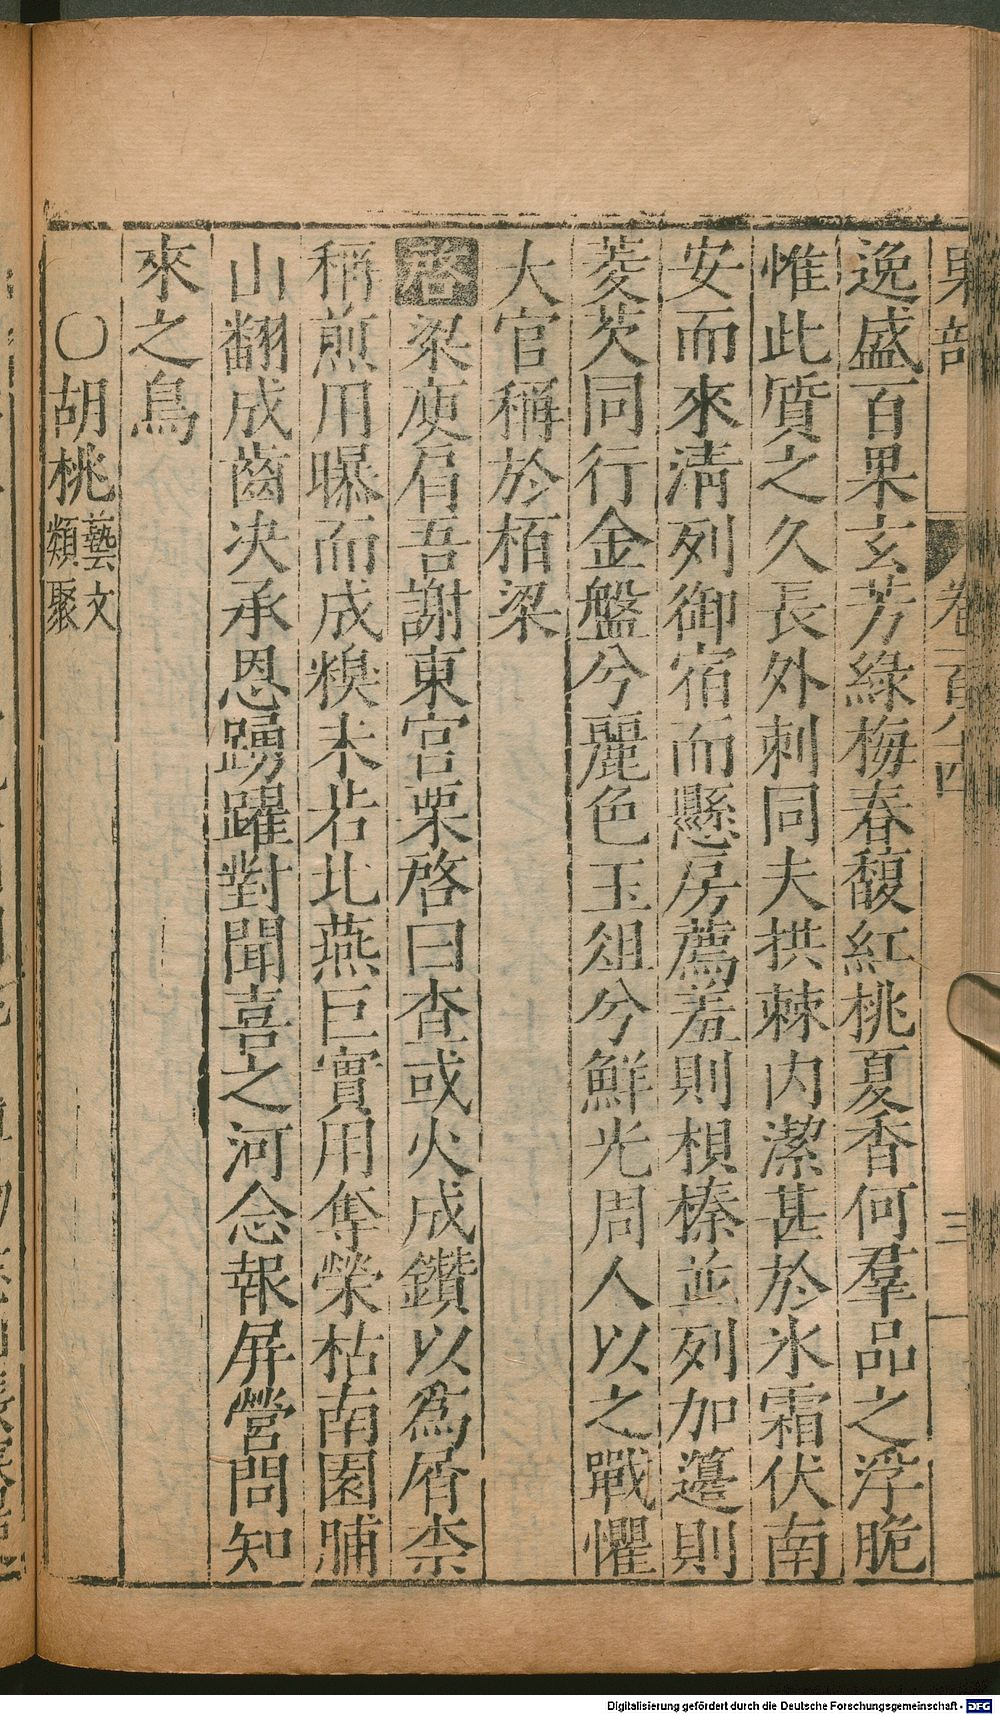 果部 卷一百八十四 三
逸盛百果玄芳綠梅春馥紅桃夏香何羣品之浮脆
惟此質之久長外刺同夫拱棘内潔甚於氷霜伏南
安而來清列御宿而懸房薦羞則棖榛並列加籩則
菱芡同行金盤兮麗色玉俎兮鮮光周人以之戰懼
大官稱於栢梁
啓梁庾肩吾謝東宮栗啓曰查或火成鑽以為屑柰
稱煎用曝而成糗未若北燕巨實用奪榮枯南園脯
山翻成齒决承恩踴躍對聞喜之河念報屏營問知
來之鳥
〇胡桃藝文類聚
Digitalisierung gefördert durch die Deutsche Forschungsgemeinschaft - DFG